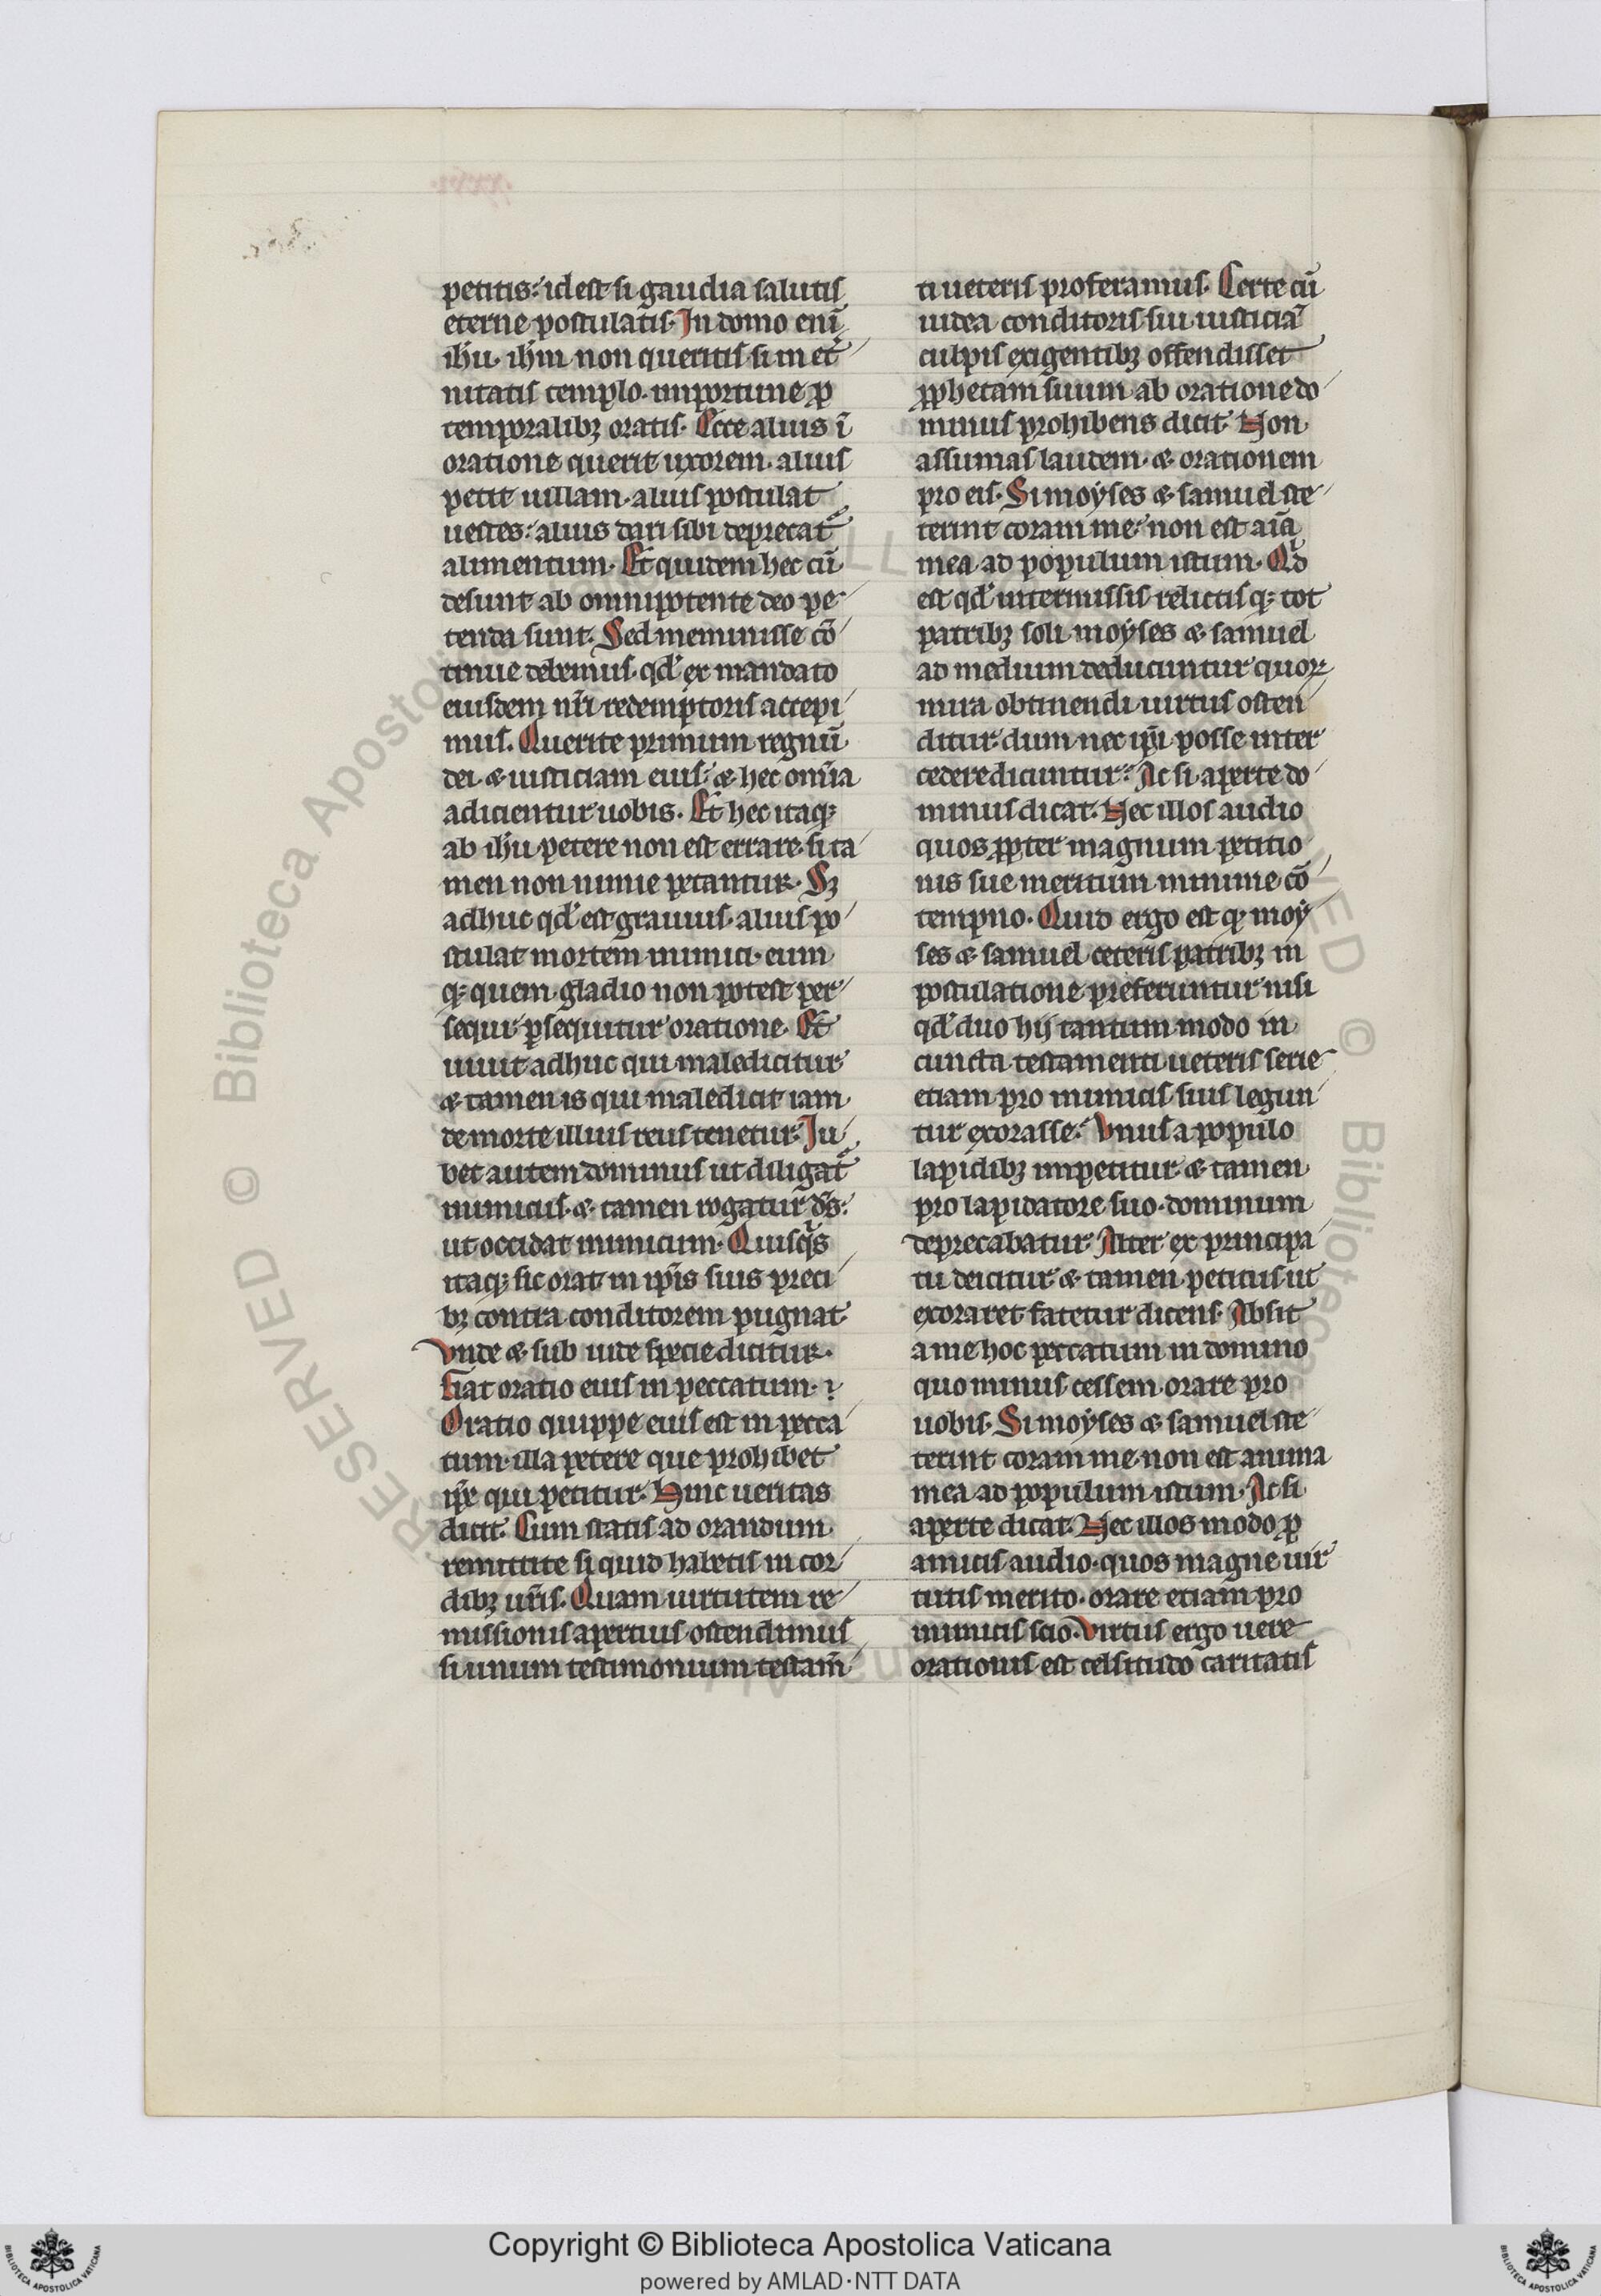 petitis: id est si gaudia salutis
eterne postulatis. In domo enī
ih̄u. ih̄m non queritis si in et̾
nitatis templo. inportune ꝓ
temporalibꝫ oratis. Ecce alius ī
oratione querit uxorem. alius
petit uillam. alius postulat
uestes: alius dari sibi deprecat᷑
alimentum. Et quidem hec cū
desunt ab omnipotente deo pe
tenda sunt. Sed meminisse cō
tinue debemus. qd̾ ex mandato
eiusdem nr̄i redemptoris accepi
mus. Querite primum regnū
dei. & iusticiam eius: & hec om̄ia
adicientur uobis. Et hec itaqꝫ
ab ih̄u petere non est errare. si ta
men non nimie petantur. Sꝫ
adhuc qd̾ est grauius. alius po
stulat mortem inimici. eum
qꝫ quem gladio non potest per
sequi ꝑsequitur oratione. Et
uiuit adhuc qui maledicitur
& tamen is qui maledicit iam
de morte illius reus tenetur. Iu
bet autem dominus ut diligat᷑
inimicus. & tamen rogatur d̄s:
ut occidat inimicum. Quisqͥs
itaqꝫ sic orat in ip̄is suis preci
bꝫ contra conditorem pugnat.
Vnde & sub iude specie dicitur.
Fiat oratio eius in peccatum.
Oratio quippe eius est in pecca
tum. illa petere que prohibet
ip̄e qui petitur. Hinc ueritas
dicit. Cum statis ad orandum
remittite si quid habetis in cor
dibꝫ ur̄is. Quam uirtutem re
missionis apertius ostendimus
si unum testimonium testam̄
ti ueteris proferamus. Certe cū
iudea conditoris sui iusticiā
culpis exigentibꝫ offendisset
ꝓphetam suum ab oratione do
minus prohibens dicit. Non
assumas laudem. & orationem
pro eis. Si moyses & samuel ste
terint coram me: non est aīa
mea ad populum istum. Qͩd
est qd̾ intermissis relictisqꝫ tot
patribꝫ soli moyses & samuel
ad medium deducuntur quoꝝ
mira obtinendi uirtus osten
ditur. dum nec ip̄i posse inter
cedere dicuntur: Ac si aperte do
minus dicat. Nec illos audio
quos ꝓpter magnum petitio
nis sue meritum minime cō
tempno. Quid ergo est qꝫ moy
ses & samuel ceteris patribꝫ in
postulatione preferuntur nisi
qd̾ duo hij tantum modo in
cuncta testamenti ueteris serie
etiam pro inimicis suis legun
tur exorasse: Vnus a populo
lapidibꝫ inpetitur & tamen
pro lapidatore suo. dominum
deprecabatur. Alter ex principa
tu deicitur & tamen petitus ut
exoraret fatetur dicens. Absit
a me hoc peccatum in domino
quo minus cessem orare pro
uobis. Si moyses & samuel ste
terint coram me. non est anima
mea ad populum istum. Ac si
aperte dicat. Nec illos modo ꝓ
amicis audio. quos magne uir
tutis merito. orare etiam pro
inimicis scio. Virtus ergo uere
orationis est celsitudo caritatis
© Biblioteca Apostolica Vaticana
RESERVED
Copyright © Biblioteca Apostolica Vaticana
powered by AMLAD·NTT DATA
BIBLIOTECA APOSTOLICA VATICANA
BIBLIOTECA APOSTOLICA VATICANA